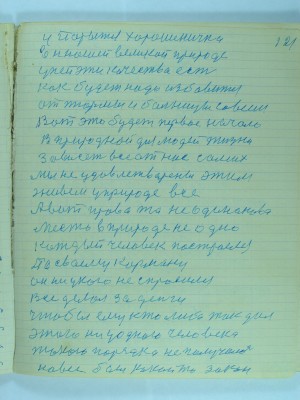 121
и Парытся хорошиничка
в нашей великой природе
у нея эти качества есть
как будет надо избавится
от тюрьмы и больницы совсем
Вот это будет первое начало
В природной для людей жизни
Зависет все от нас самих
мы не удовлетварены этим
живем у природе все
А вот права та не одинакова
место в природе не одно
каждый человек построился
По своему карману
он ни у кого не спросился
Все делал за деньги
чтобы ему кто либо так дал
этого ни у одного человека
такого порядка не получалос
на все был какой то закон